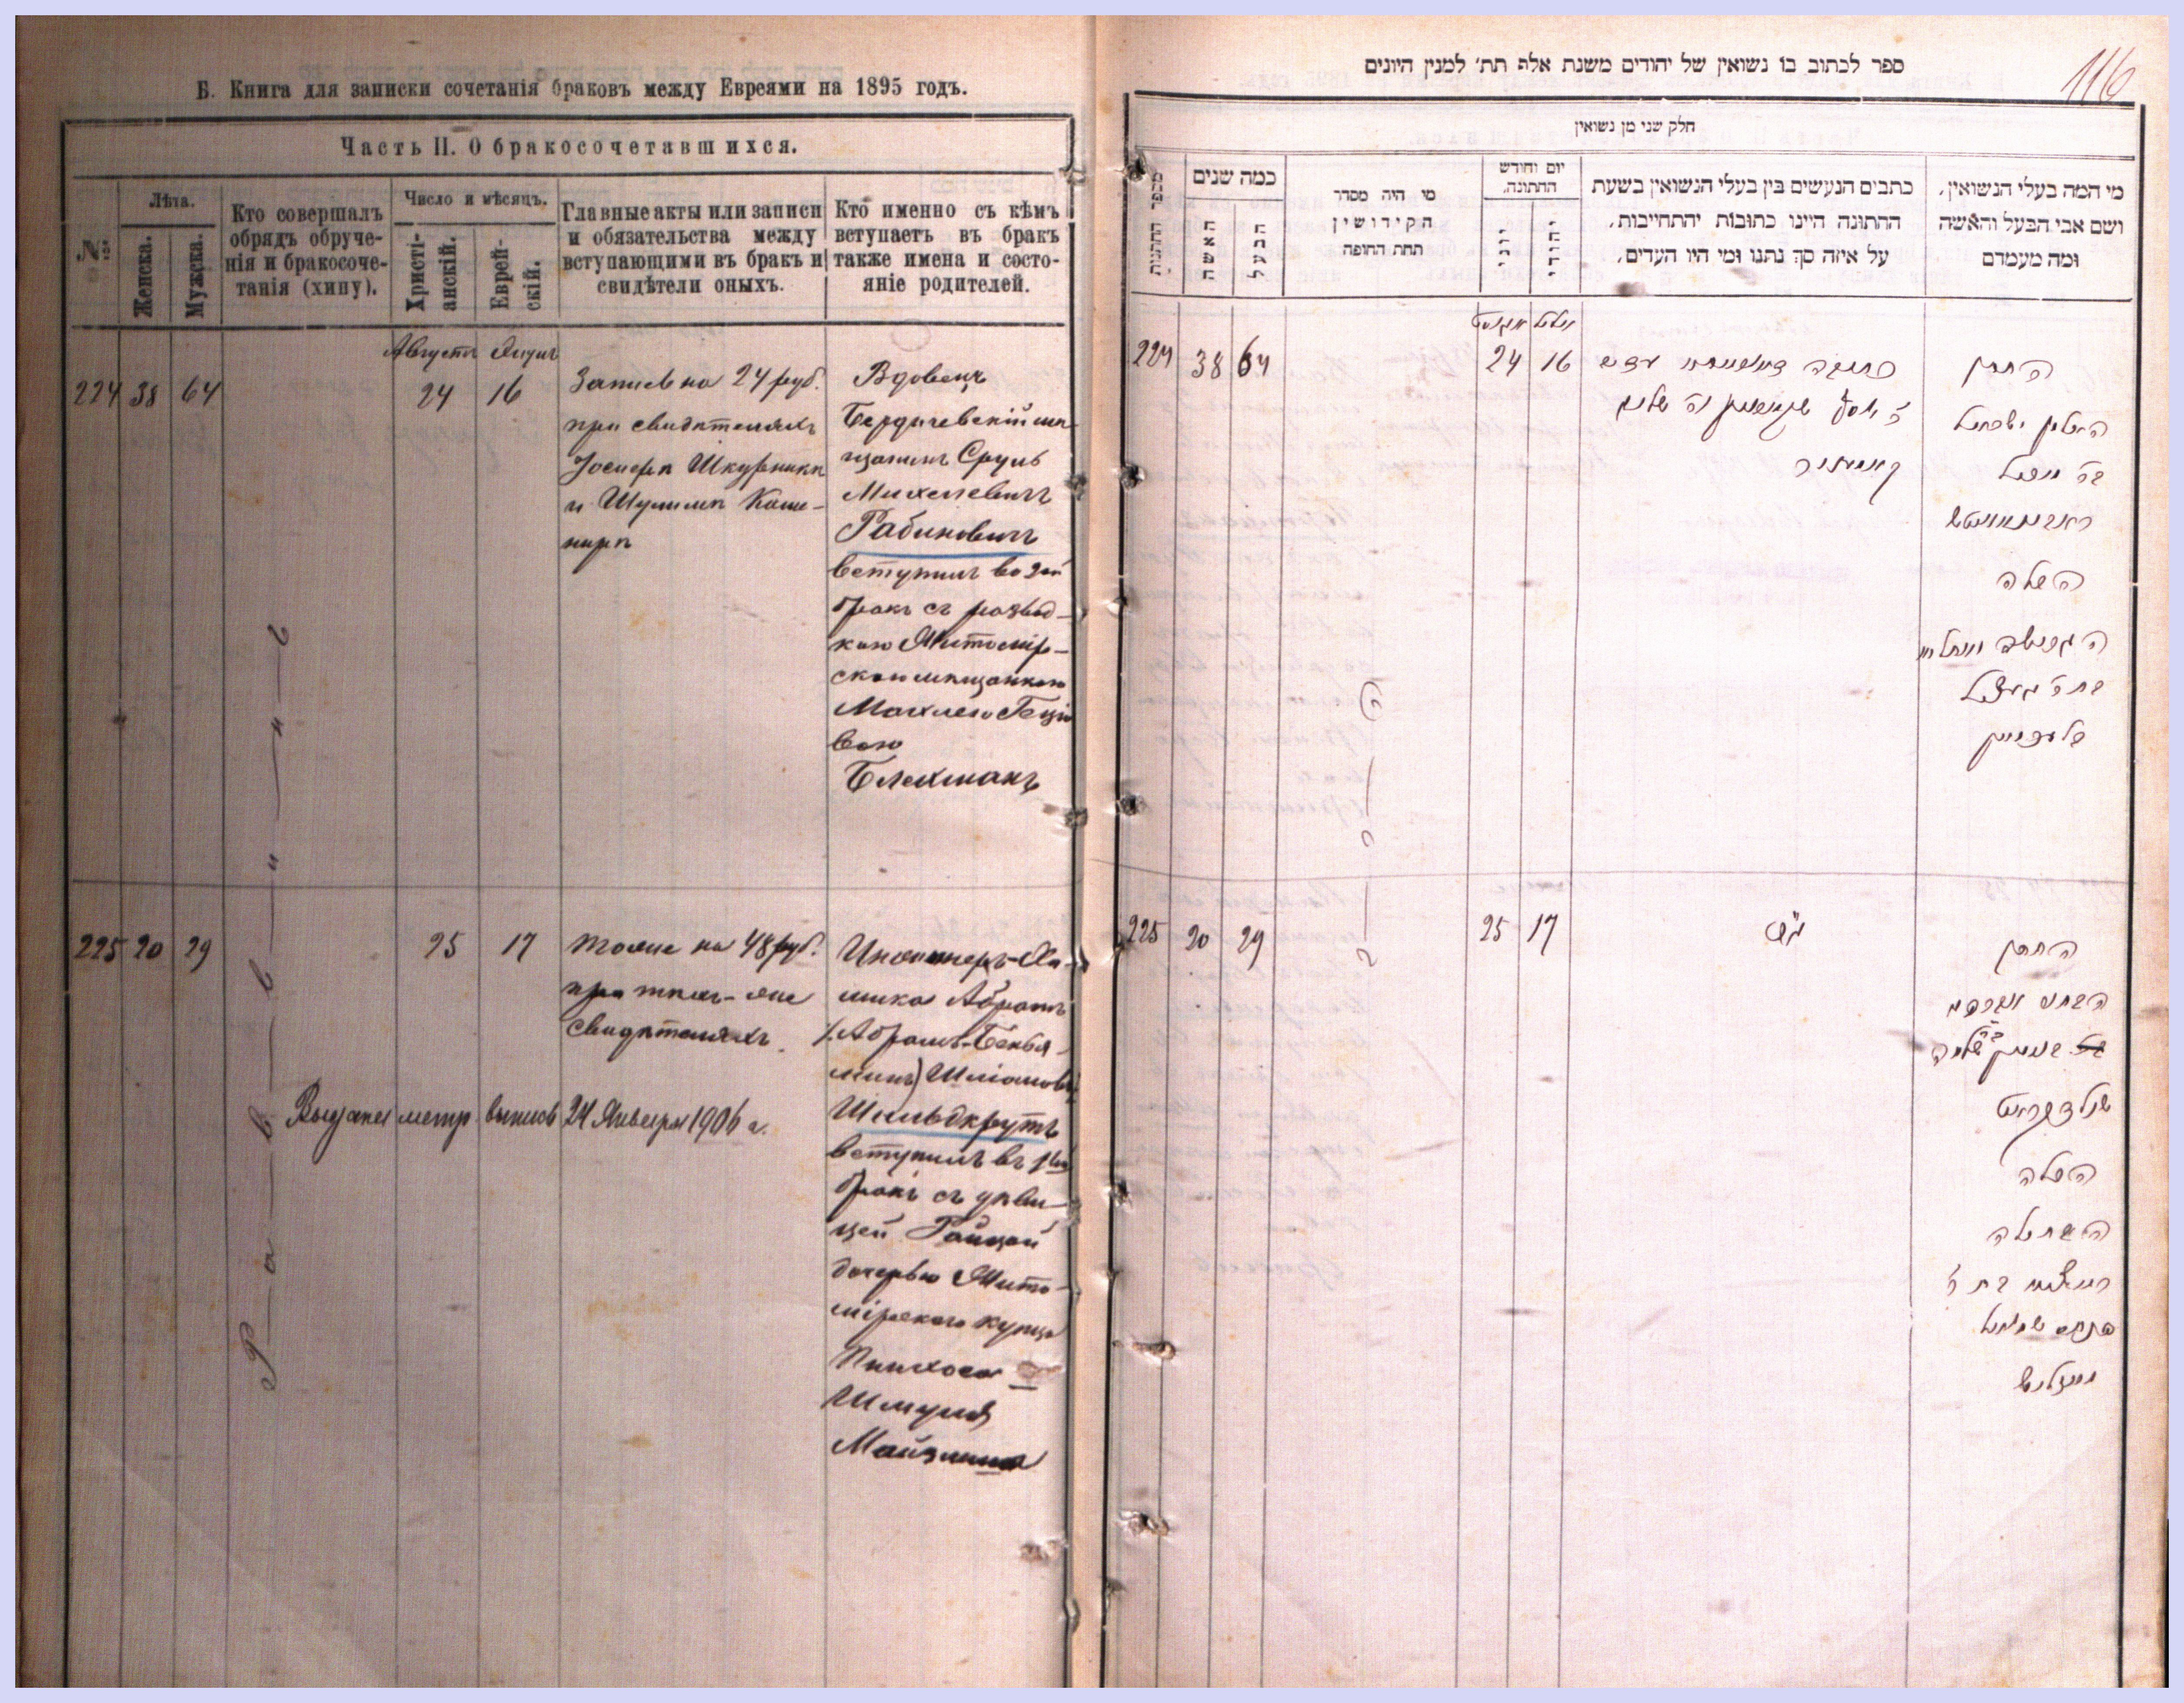 Б. Книга для записки сочетанія браковъ между Евреями на 1895 годъ.
Часть II. О бракосочетавшихся.
№
Лѣта.
Женска.
Мужска.
Кто совершалъ
обрядъ обруче-
нія и бракосоче-
танія (хипу).
Число и мѣсяцъ.
Христі-
анскій.
Еврей-
скій.
Главные акты или записи
и обязательства между
вступающими въ бракъ и
свидѣтели оныхъ.
Кто именно съ кѣмъ
вступаетъ въ бракъ
также имена и состо-
яніе родителей.
224 38 64
Августъ
24
16
Запись на 24 руб.
при свидѣтеляхъ
Іосифѣ Шкурникѣ
и Шулимѣ Каш-
нирѣ
Вдовецъ
Бердичевскій мѣ-
щанинъ Сруль
Михелевичъ
Рабиновичъ
вступилъ во 2ой
бракъ съ развод-
кою Житомір-
скою мѣщанкою
Махлею Геців
вою
Блехманъ
Раввинъ
225 20 29
25
17
тоже на 48 руб.
при тѣхъ-же
свидѣтеляхъ
Выдана метр. выпись 24 Января 1906 г.
Инженеръ-Хи-
мика Абрамъ
(Абрамъ-Бенья-
минъ) Шліомов
Шильдкрутъ
вступилъ въ 1ый
бракъ съ дѣви-
цей Райцей
дочерью Жито-
мірскаго купца
Пинхоса
Шмуля
Майзлиша
116
ספר לכתוב בו נשואין של יהודים משנת אלף תת׳ למנין היונים
חלק שני מן נשואין
מספר החתונות
כמה שנים
האשה
הבעל
מי היה מסדר
הקידושין
תחת החופה
יום וחודש
החתונה.
יוני
יהודי
כתבים הנעשים בין בעלי הנשואין בשעת
החתונה היינו כתובות יהתחייבות,
על איזה סך נתנו ומי היו העדים,
מי המה בעלי הנשואין,
ושם אבי הבעל והאשה
ומה מעמדם
224 38 64
אויגוסט אלול
24 16
החתן
האלמן ישראל
ב״ר מיכל
ראבינאוויטש
הכלה
225 20 29
25 17
החתן
הכלה
הבתולה
פנחס שמואל